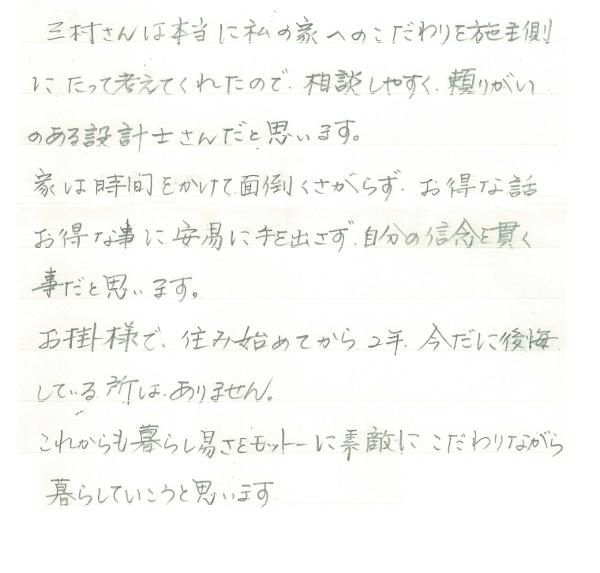 三村さんは本当に私の家へのこだわりを施主側
にたって考えてくれたので、相談しやすく、頼りがい
のある設計士さんだと思います。
家は時間をかけて面倒くさがらず、お得な話
お得な事に安易に手を出さず、自分の信念を貫く
事だと思います。
お掛様で、住み始めてから2年、今だに後悔
している所はありません。
これからも暮らし易さをモットーに素敵にこだわりながら
暮らしていこうと思います